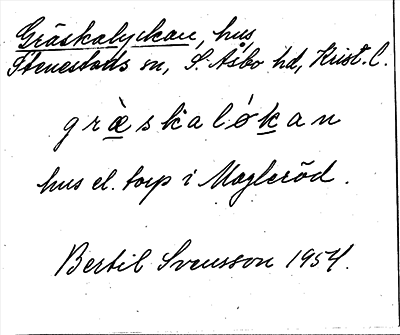 Gräskalyckan, hus
Stenestads sn, S. Åsbo hd, Krist. l.
græ̀skaløkan
hus el. torp i Magleröd.
Bertil Svensson 1954.